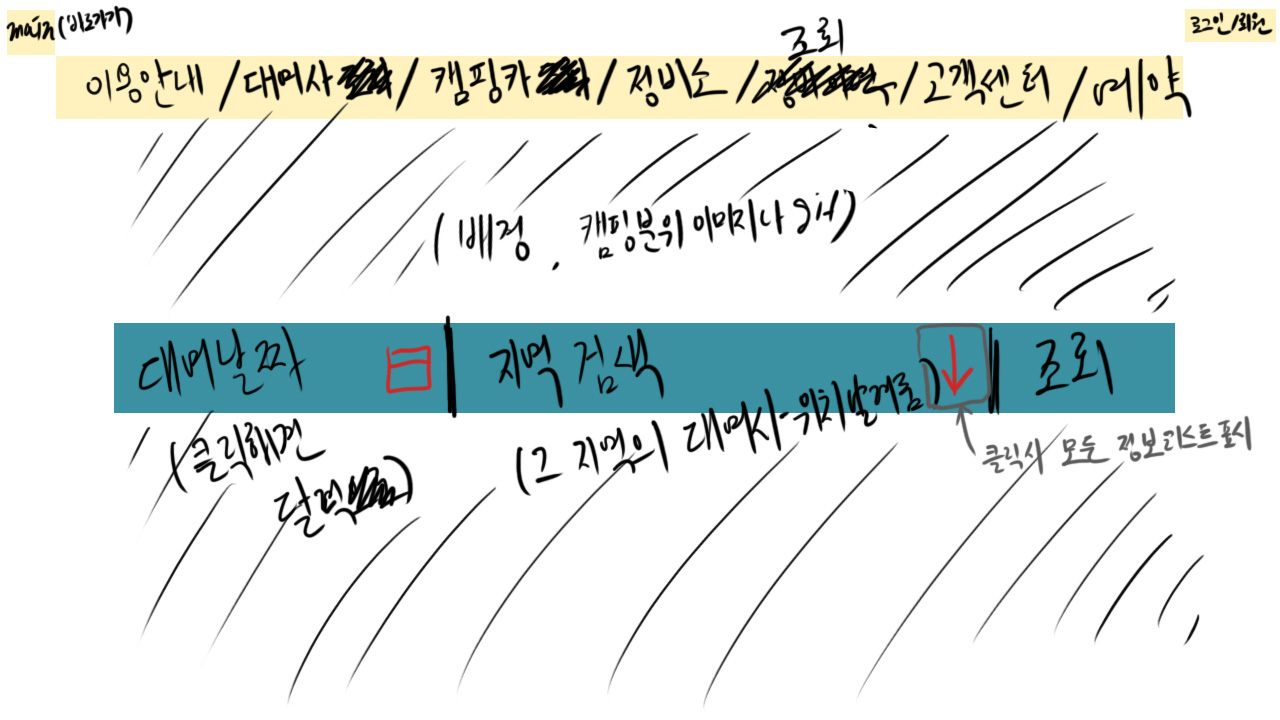 main (바로가기)
로그인/회원
조회
이용안내 / 대여사 / 캠핑카 / 정비소 / / 고객센터 / 예약
(배경, 캠핑분위 이미지나 gif)
대여날짜
지역 검색
조회
(클릭하면
달력)
(그 지역의 대여사-위치 알려줌)
클릭시 모든 정보리스트 표시